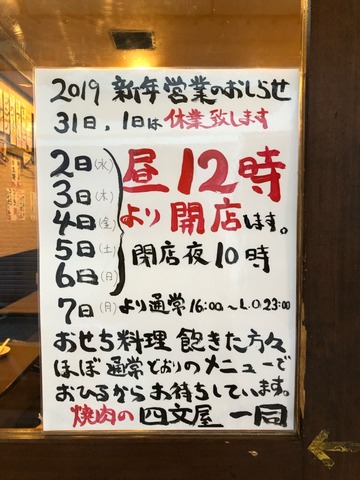 2019 新年営業のおしらせ
31日,1日は休業致します
2日(水)
3日(木)
4日(金)
5日(土)
6日(日)
昼12時
より開店します。
閉店夜10時
7日(月)より通常16:00~L.O.23:00
おせち料理 飽きた方々
ほぼ通常どおりのメニューで
おひるからお待ちしています。
焼肉の四文屋一同